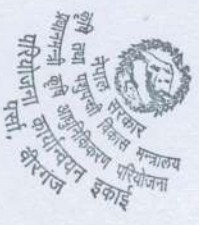 नेपाल सरकार
कृषि तथा पशुपन्छी विकास मन्त्रालय
प्रधानमन्त्री कृषि आधुनिकिकरण परियोजना
परियोजना कार्यान्वयन इकाई
पर्सा, वीरगंज